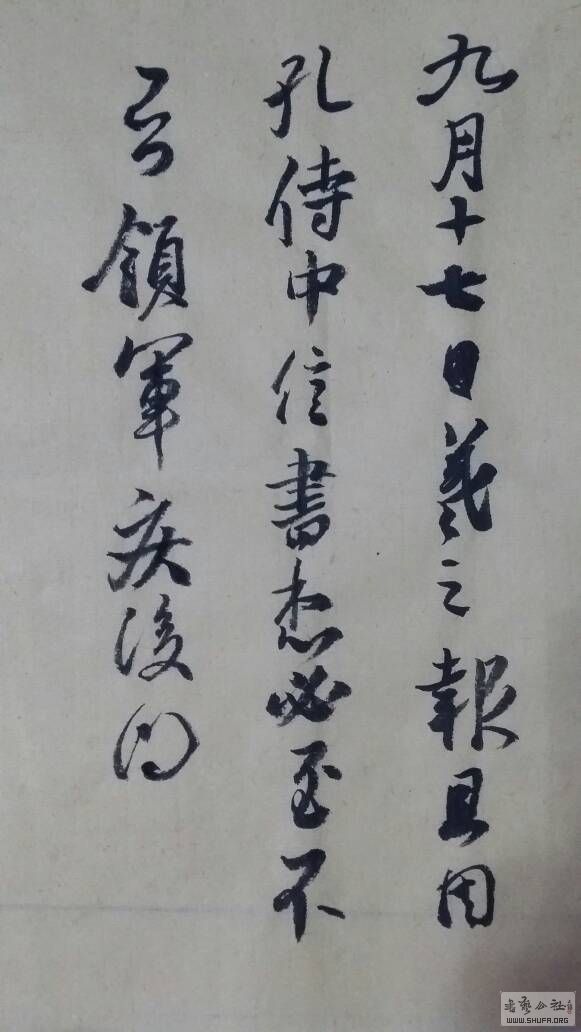 九月十七日羲之報且因
孔侍中信書想必至不
知領軍疾後問
書藝公社
WWW.SHUFA.ORG